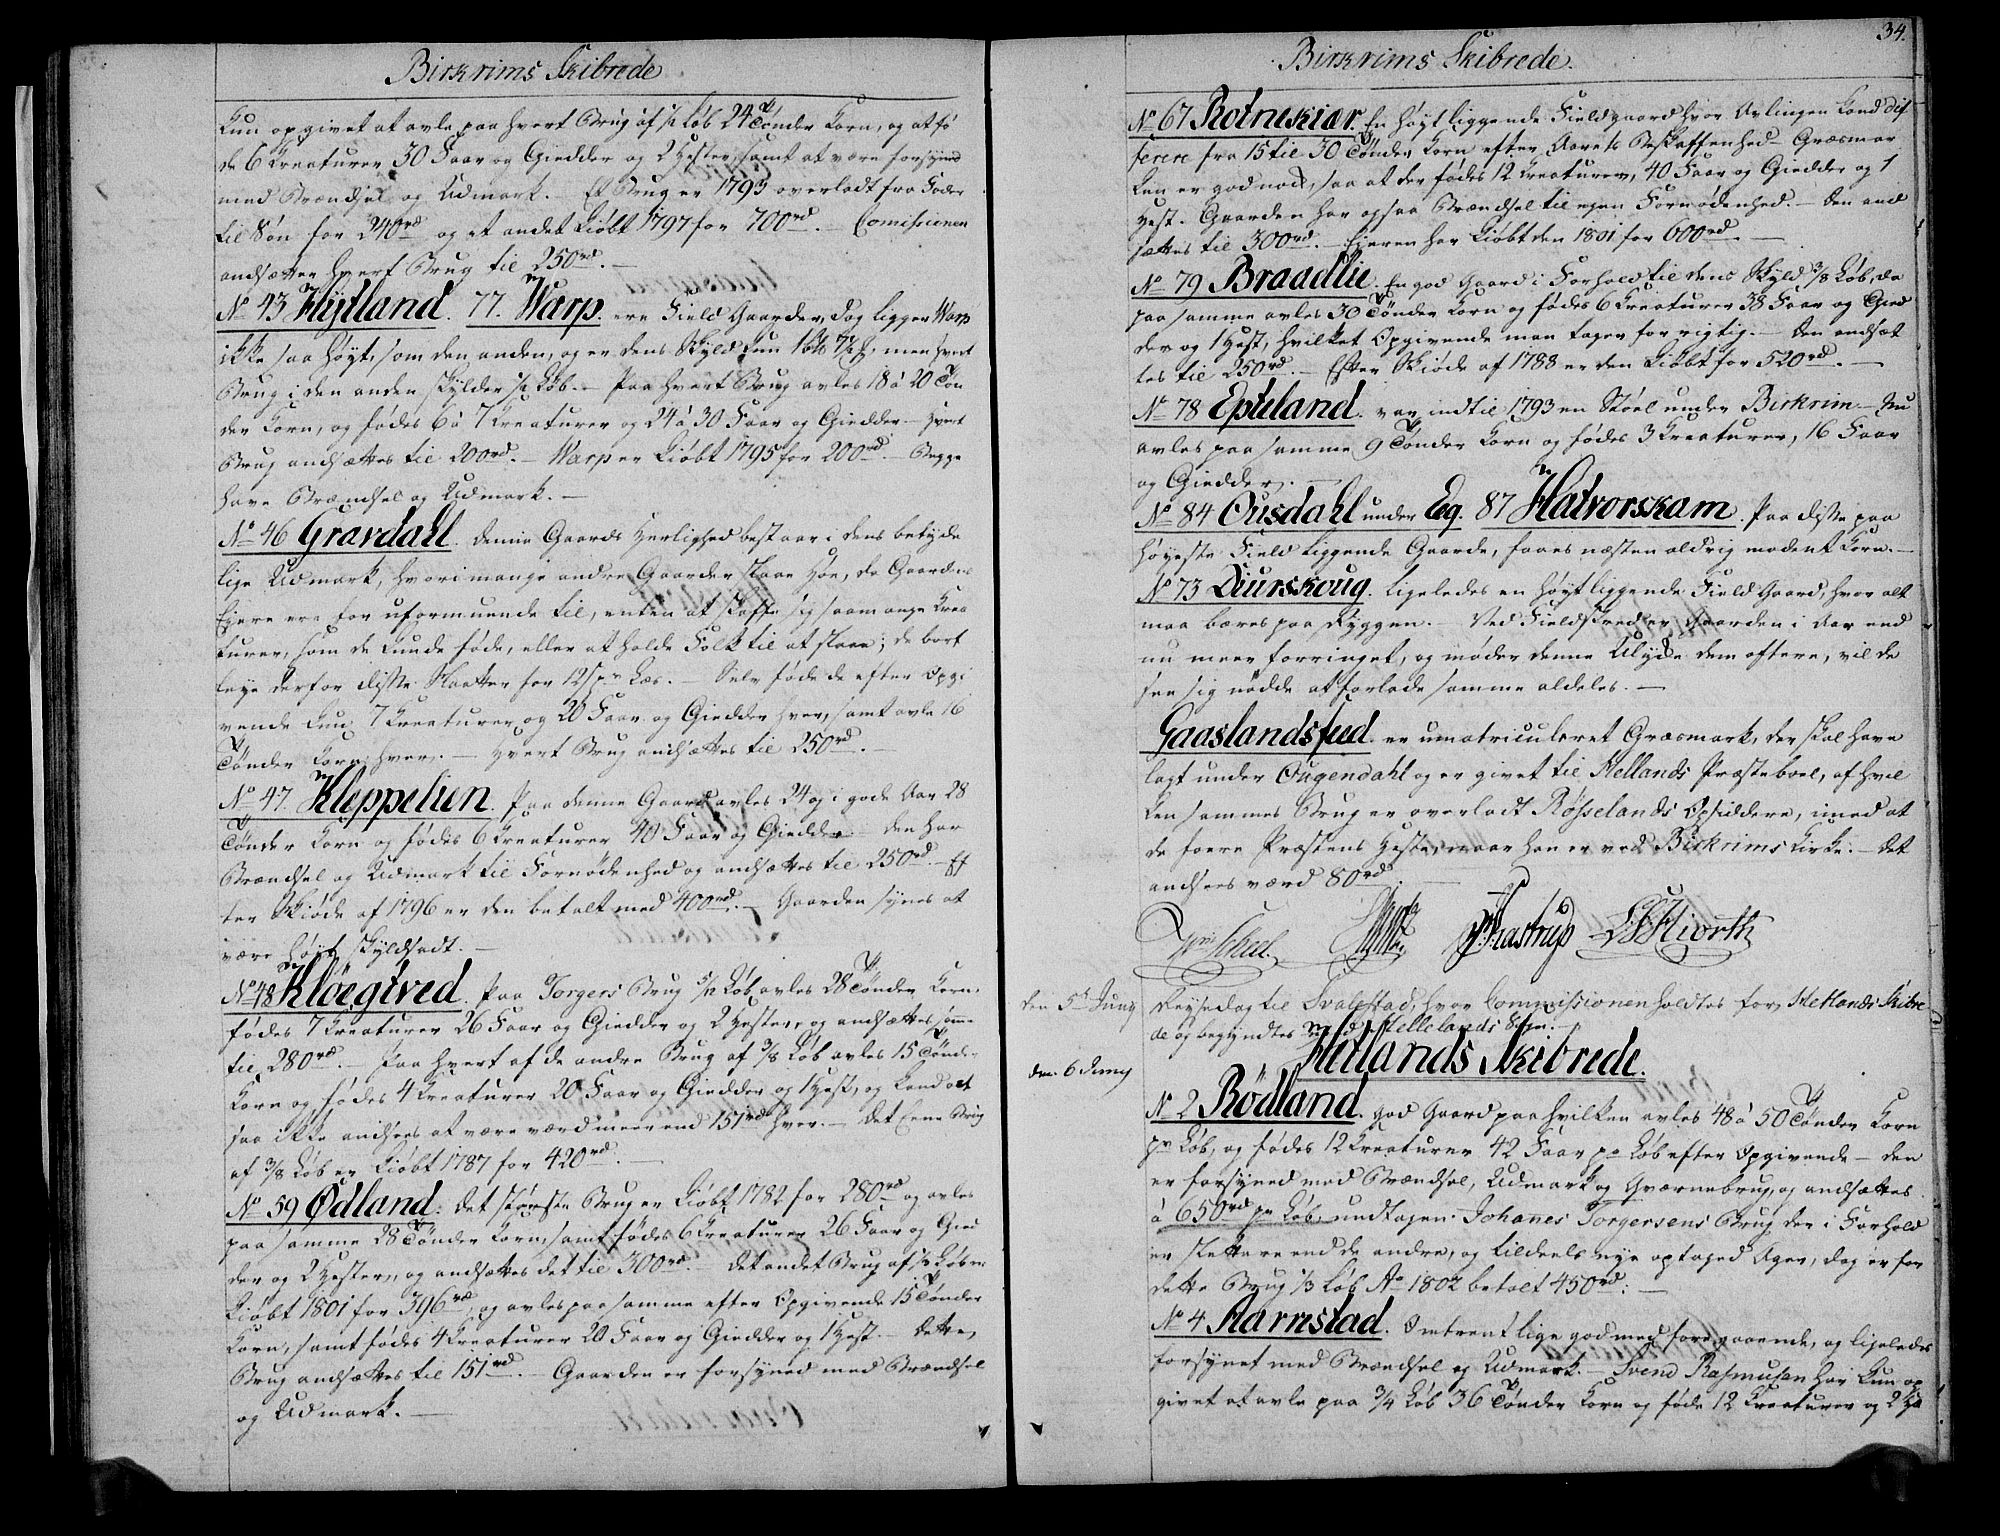 Birkrims Skibrede
kun opgivet at avle paa hvert Brug af ½ Løb 24 Tønder Korn, og at fø
de 6 Kreaturer 30 Faar og Giedder og 2 Hester, samt at være forsynet
med Brændsel og Udmark. – Et Brug er 1793 overladt fra Fader
til Søn for 240rd og et andet kiøbt 1797 for 700rd. – Comissionen
andsætter hvert Brug til 250rd. –
No 43 Hytland. 77. Warp. ere Field Gaarder, dog ligger Warp
ikke saa høyt, som den anden, og er dens Skyld kun men hvert
Brug i den anden skylder ½ Løb. – Paa hvert Brug avles 18 à 20 Tøn
der Korn, og fødes 6 à 7 Kreaturer og 24 à 30 Faar og Giedder – Hvert
Brug andsættes til 200rd. – Warp er kiøbt 1795 for 200rd. – Begge
have Brændsel og Udmark. –
No 46 Gravdahl. denne Gaards Herlighed bestaar i dens betyde
lige Udmark, hvori mange andre Gaarder slaae Høe, da Gaardens
Ejere ere for uformuende til, enten at skaffe sig saa mange Krea
turer, som de kunde føde, eller at holde Folk til at slaae; de bort
leye derfor disse Slaatter for 12 s pr Læs. – Selv føde de efter Opgi
vende kun 7 Kreaturer og 20 Faar og Giedder hver, samt avle 16
Tønder Korn hver. – Hvert Brug andsættes til 250rd. –
No 47. Kleppelien. Paa denne Gaard avles 24 og i gode Aar 28
Tønder Korn og fødes 6 Kreaturer 40 Faar og Giedder – den har
Brændsel og Udmark til Fornødenhed og andsættes til 250rd. – Ef
ter Skiøde af 1796 er den betalt med 400rd. – Gaarden synes at
være høyt skyldsadt. –
No 48 Kløgtved. Paa Torgers Brug 5/12 Løb avles 28 Tønder Korn,
fødes 7 Kreaturer 26 Faar og Giedder og 2 Hester, og andsættes samme
til 280rd. – Paa hvert af de andre Brug af 3/8 Løb avles 15 Tønder
Korn og fødes 4 Kreaturer 20 Faar og Giedder og 1 Hest, og kand alt
saa ikke andsees at være værd meer end 151rd hver. – Det Eene Brug
af 3/8 Løb er kiøbt 1787 for 420rd. –
No 59 Ødland. Det største Brug er kiøbt 1782 for 280rd og avles
paa samme 28 Tønder Korn, samt fødes 6 Kreaturer 26 Faar og Gied
der og 2 Hester, og andsættes det til 300rd. – Det andet Brug af ½ Løb er
kiøbt 1801 for 396rd, og avles paa samme efter Opgivende 15 Tønder
Korn, samt fødes 4 Kreaturer 20 Faar og Giedder og 1 Hest. Dette
Brug andsættes til 151rd. – Gaarden er forsyned med Brændsel
og Udmark. –
34.
Birkrims Skibrede.
No 67 Rotnekiær. En høyt liggende Fieldgaard hvor Avlingen kand dif
ferere fra 15 til 30 Tønder Korn efter Aarets Beskaffenhed – Græsmar
ken er god nok, saa at der fødes 12 Kreaturer, 40 Faar og Giedder og 1
Hest. Gaarden har ogsaa Brændsel til egen Fornødenhed. – Den and
sættes til 300rd. – Ejeren har kiøbt den 1801 for 600rd. –
No 79 Braadlie. En god Gaard i Forhold til dens Skyld 3/8 Løb, da
paa samme avles 30 Tønder Korn og fødes 6 Kreaturer 38 Faar og Gied
der og 1 Hest, hvilket Opgivende man tager for rigtig. – Den andsæt
tes til 250rd. – Efter Skiøde af 1788 er den kiøbt for 520rd. –
No 78 Epteland. var indtil 1793 en Støel under Birkrim – Nu
avles paa samme 9 Tønder Korn og fødes 3 Kreaturer, 16 Faar
og Giedder. –
No 84 Ousdahl under Eeg. 87 Halvorskam. Paa disse paa
høyeste Field liggende Gaarde, faaes næsten aldrig modent Korn. –
No 73 Diurskoug. ligeledes en høyt liggende Field Gaard, hvor alt
maa bæres paa Ryggen. – Ved Fieldskred er Gaarden i Aar end
nu meer forringet, og møder denne Ulyde dem oftere, vil de
see sig nødde at forlade samme aldeles. –
Gaaslandsfeed. er umatriculeret Græsmark, der skal have
lagt under Øugendahl og er givet til Hellands Præsteboel, af hvil
ken sammes Brug er overladt Røsselands Opsiddere, imod at
de foere Præstens Heste, naar han er ved Birkrims Kirke. – Det
andsees værd 80rd. –
Scheel. Aastrup Hiorth
den 5t Juny Reysedag til Svalestad, hvor Commissionen holdtes for Hetlands Skibre
de og begyndtes med Hellelands Sogn. –
Hetlands Skibrede.
den 6 Juny
No 2 Rødland. god Gaard paa hvilken avles 48 à 50 Tønder Korn
pr Løb, og fødes 12 Kreaturer 42 Faar pr Løb efter Opgivende – den
er forsyned med Brændsel, Udmark og Qværnebrug, og andsættes
à 650rd pr Løb, undtagen Johannes Torgersens Brug der i Forhold
er slettere end de andre, og tildeels nye optaged Ager, dog er for
dette Brug 1/3 Løb Ao 1802 betalt 450rd. –
No 4 Aarrestad. Omtrent lige god med foregaaende, og ligeledes
forsynet med Brændsel og Udmark. – Svend Rasmusen har kun op
givet at avle paa 3/4 Løb 36 Tønder Korn og føde 12 Kreaturer og 2 He